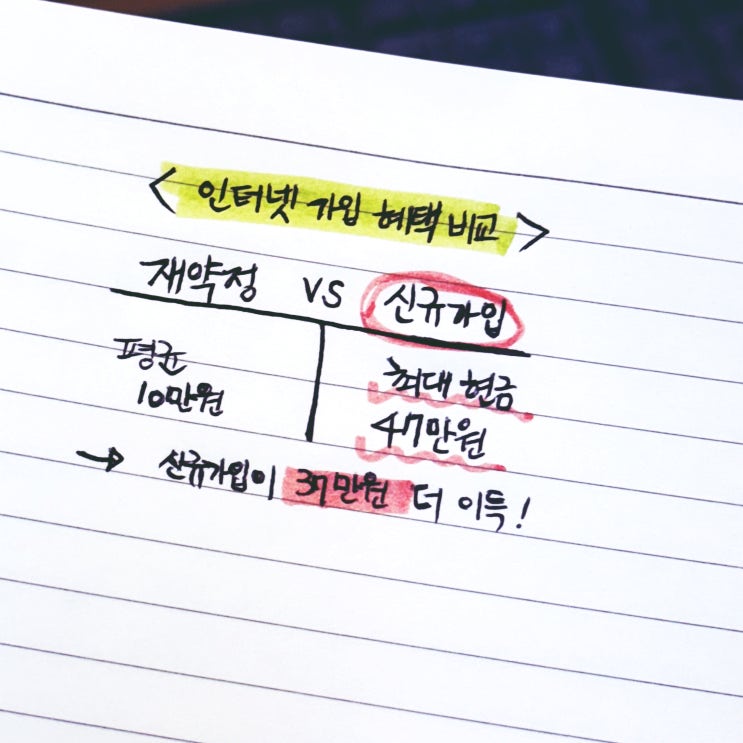 <인터넷 가입 혜택 비교>
재약정 vs 신규가입
평균
10만원
최대 현금
47만원
→ 신규가입이 37만원 더 이득!